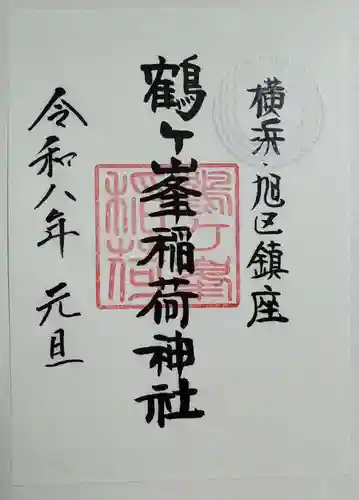 横浜・旭区鎮座
鶴ケ峯稲荷神社
鶴ケ峯
稲荷
令和八年 元旦